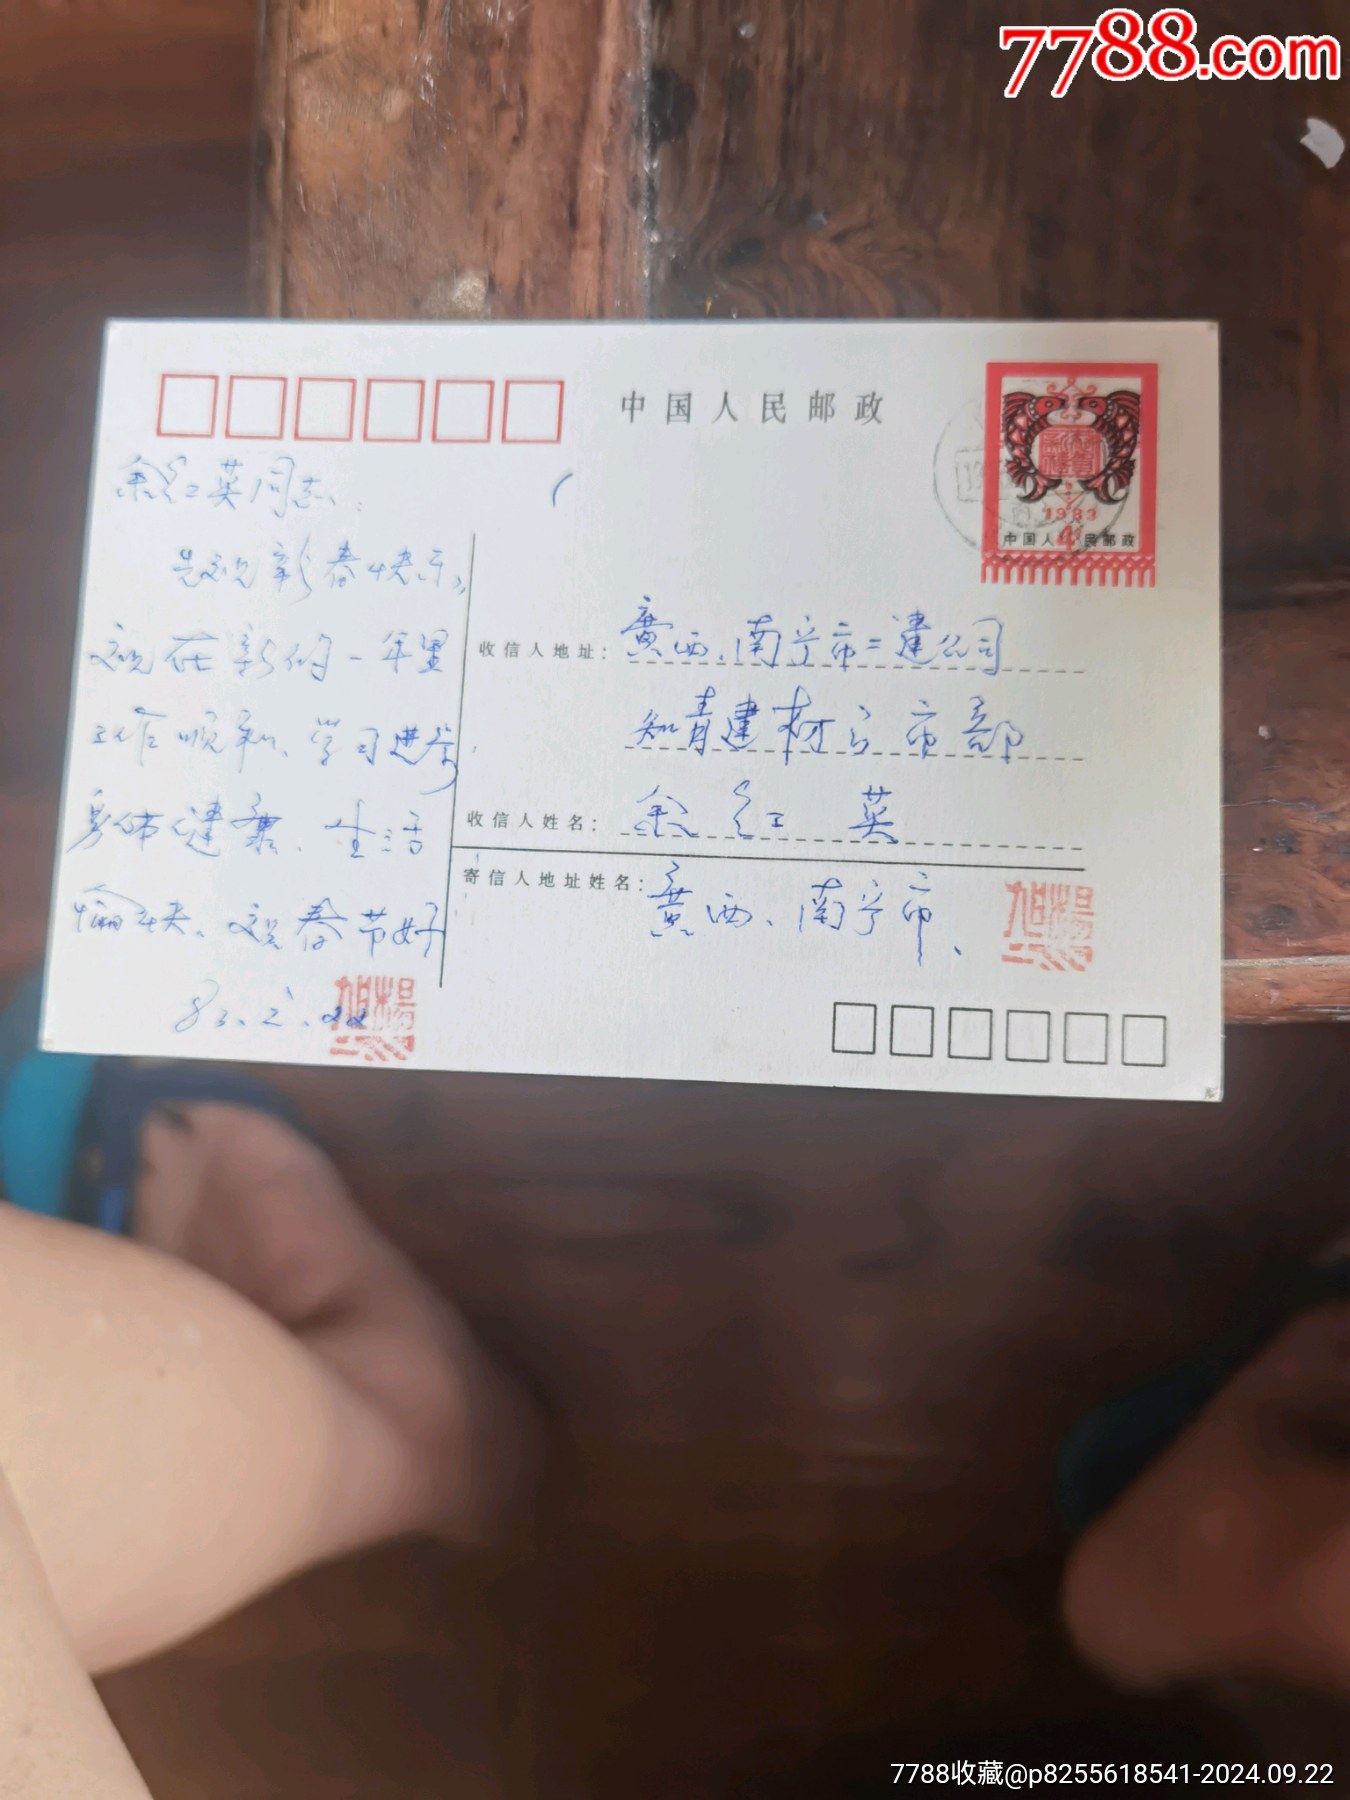 7788.com
中国人民邮政
1983
4
中国人民邮政
余红英同志:
先祝新春快乐,
祝在新的一年里
工作顺利、学习进步
身体健康、生活
愉快、祝春节好
83.2.
杨旭
收信人地址:廣西、南宁市二建公司
知青建材门市部
收信人姓名:余红英
寄信人地址姓名:廣西、南宁市、
杨旭
7788收藏@p8255618541-2024.09.22